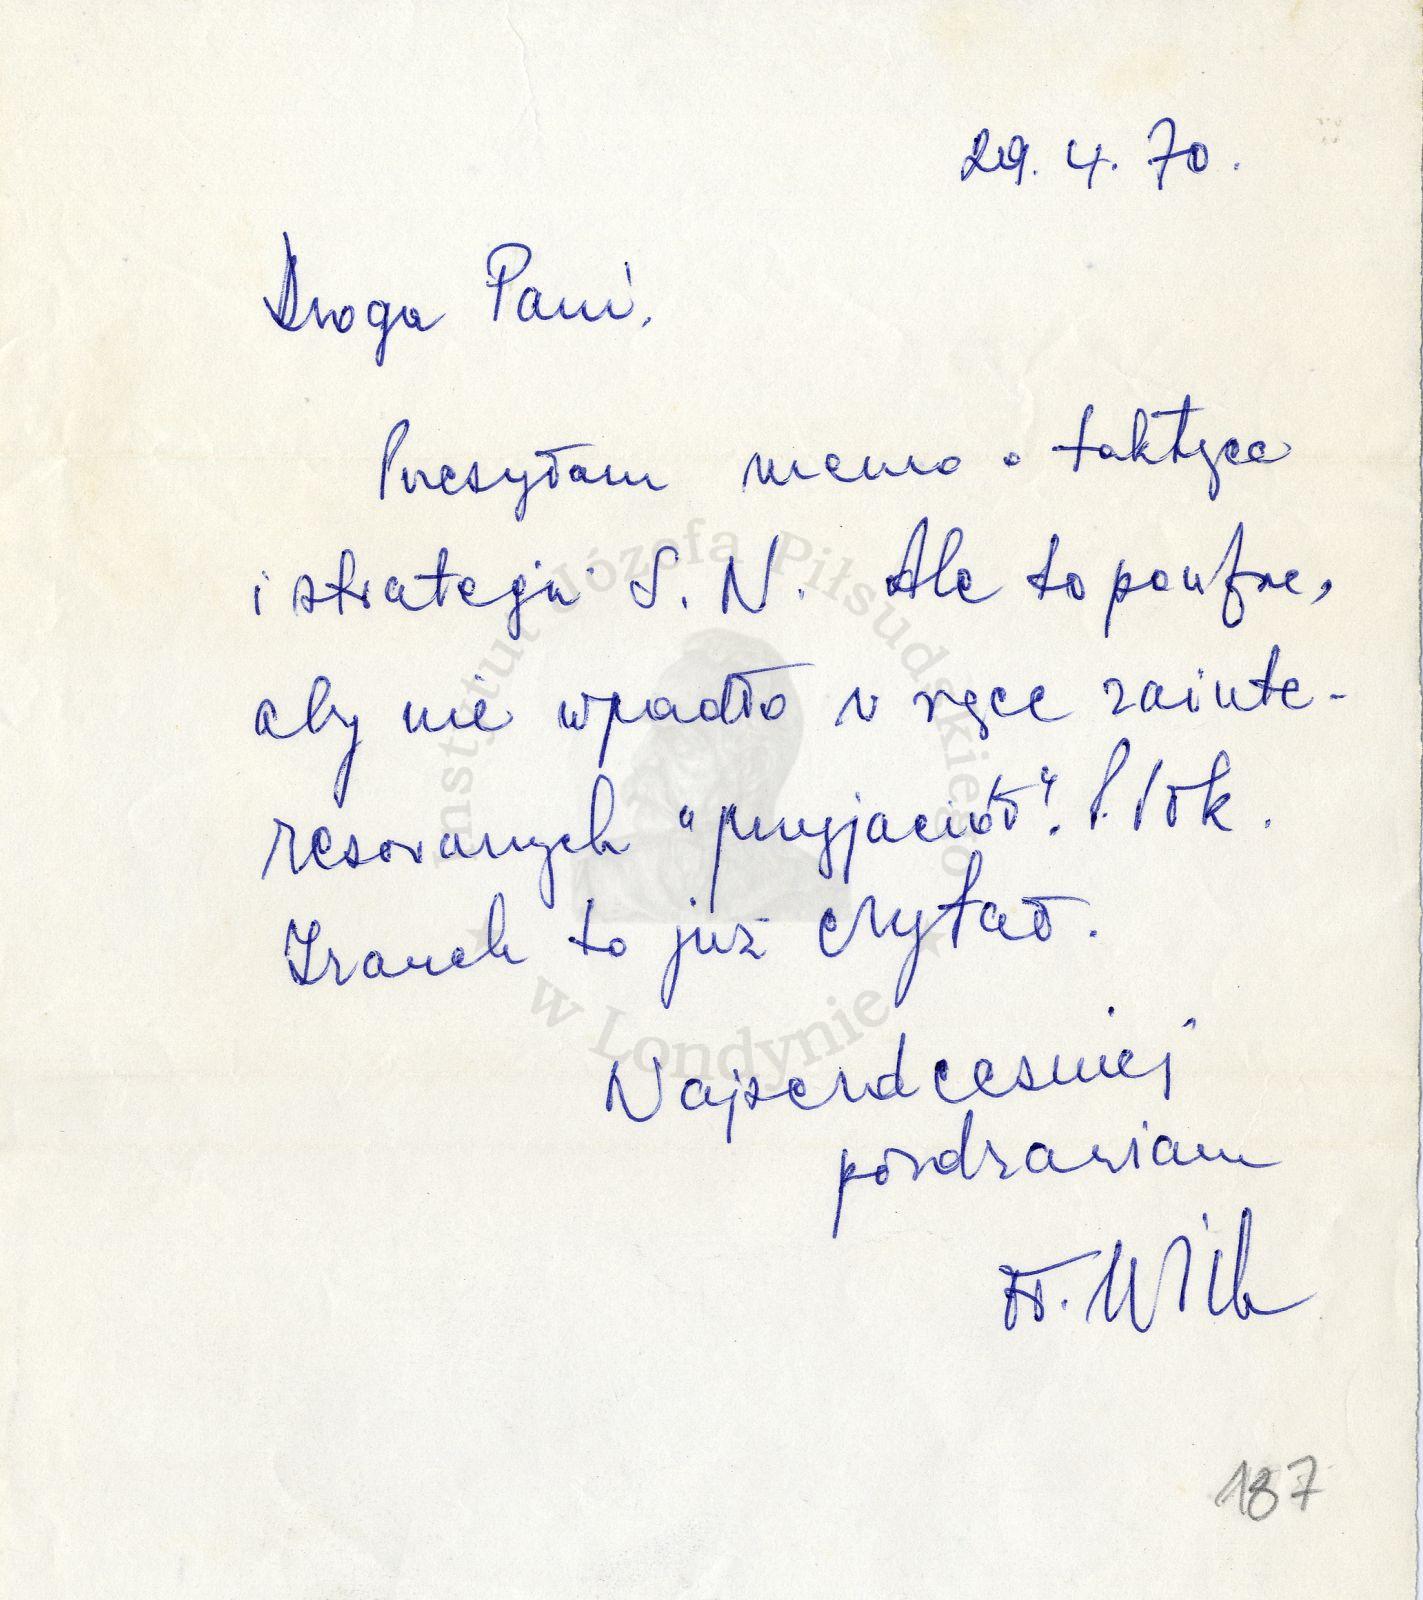 29.4.70.
Droga Pani,
Przesyłam memo o taktyce
i strategii S. N. Ale to poufne,
aby nie wpadło w ręce zainte-
resowanych "przyjaciół". P. płk.
Iranek to już czytał.
Najserdeczniej
pozdrawiam
Wilk
187
Instytut Józefa Piłsudskiego
w Londynie